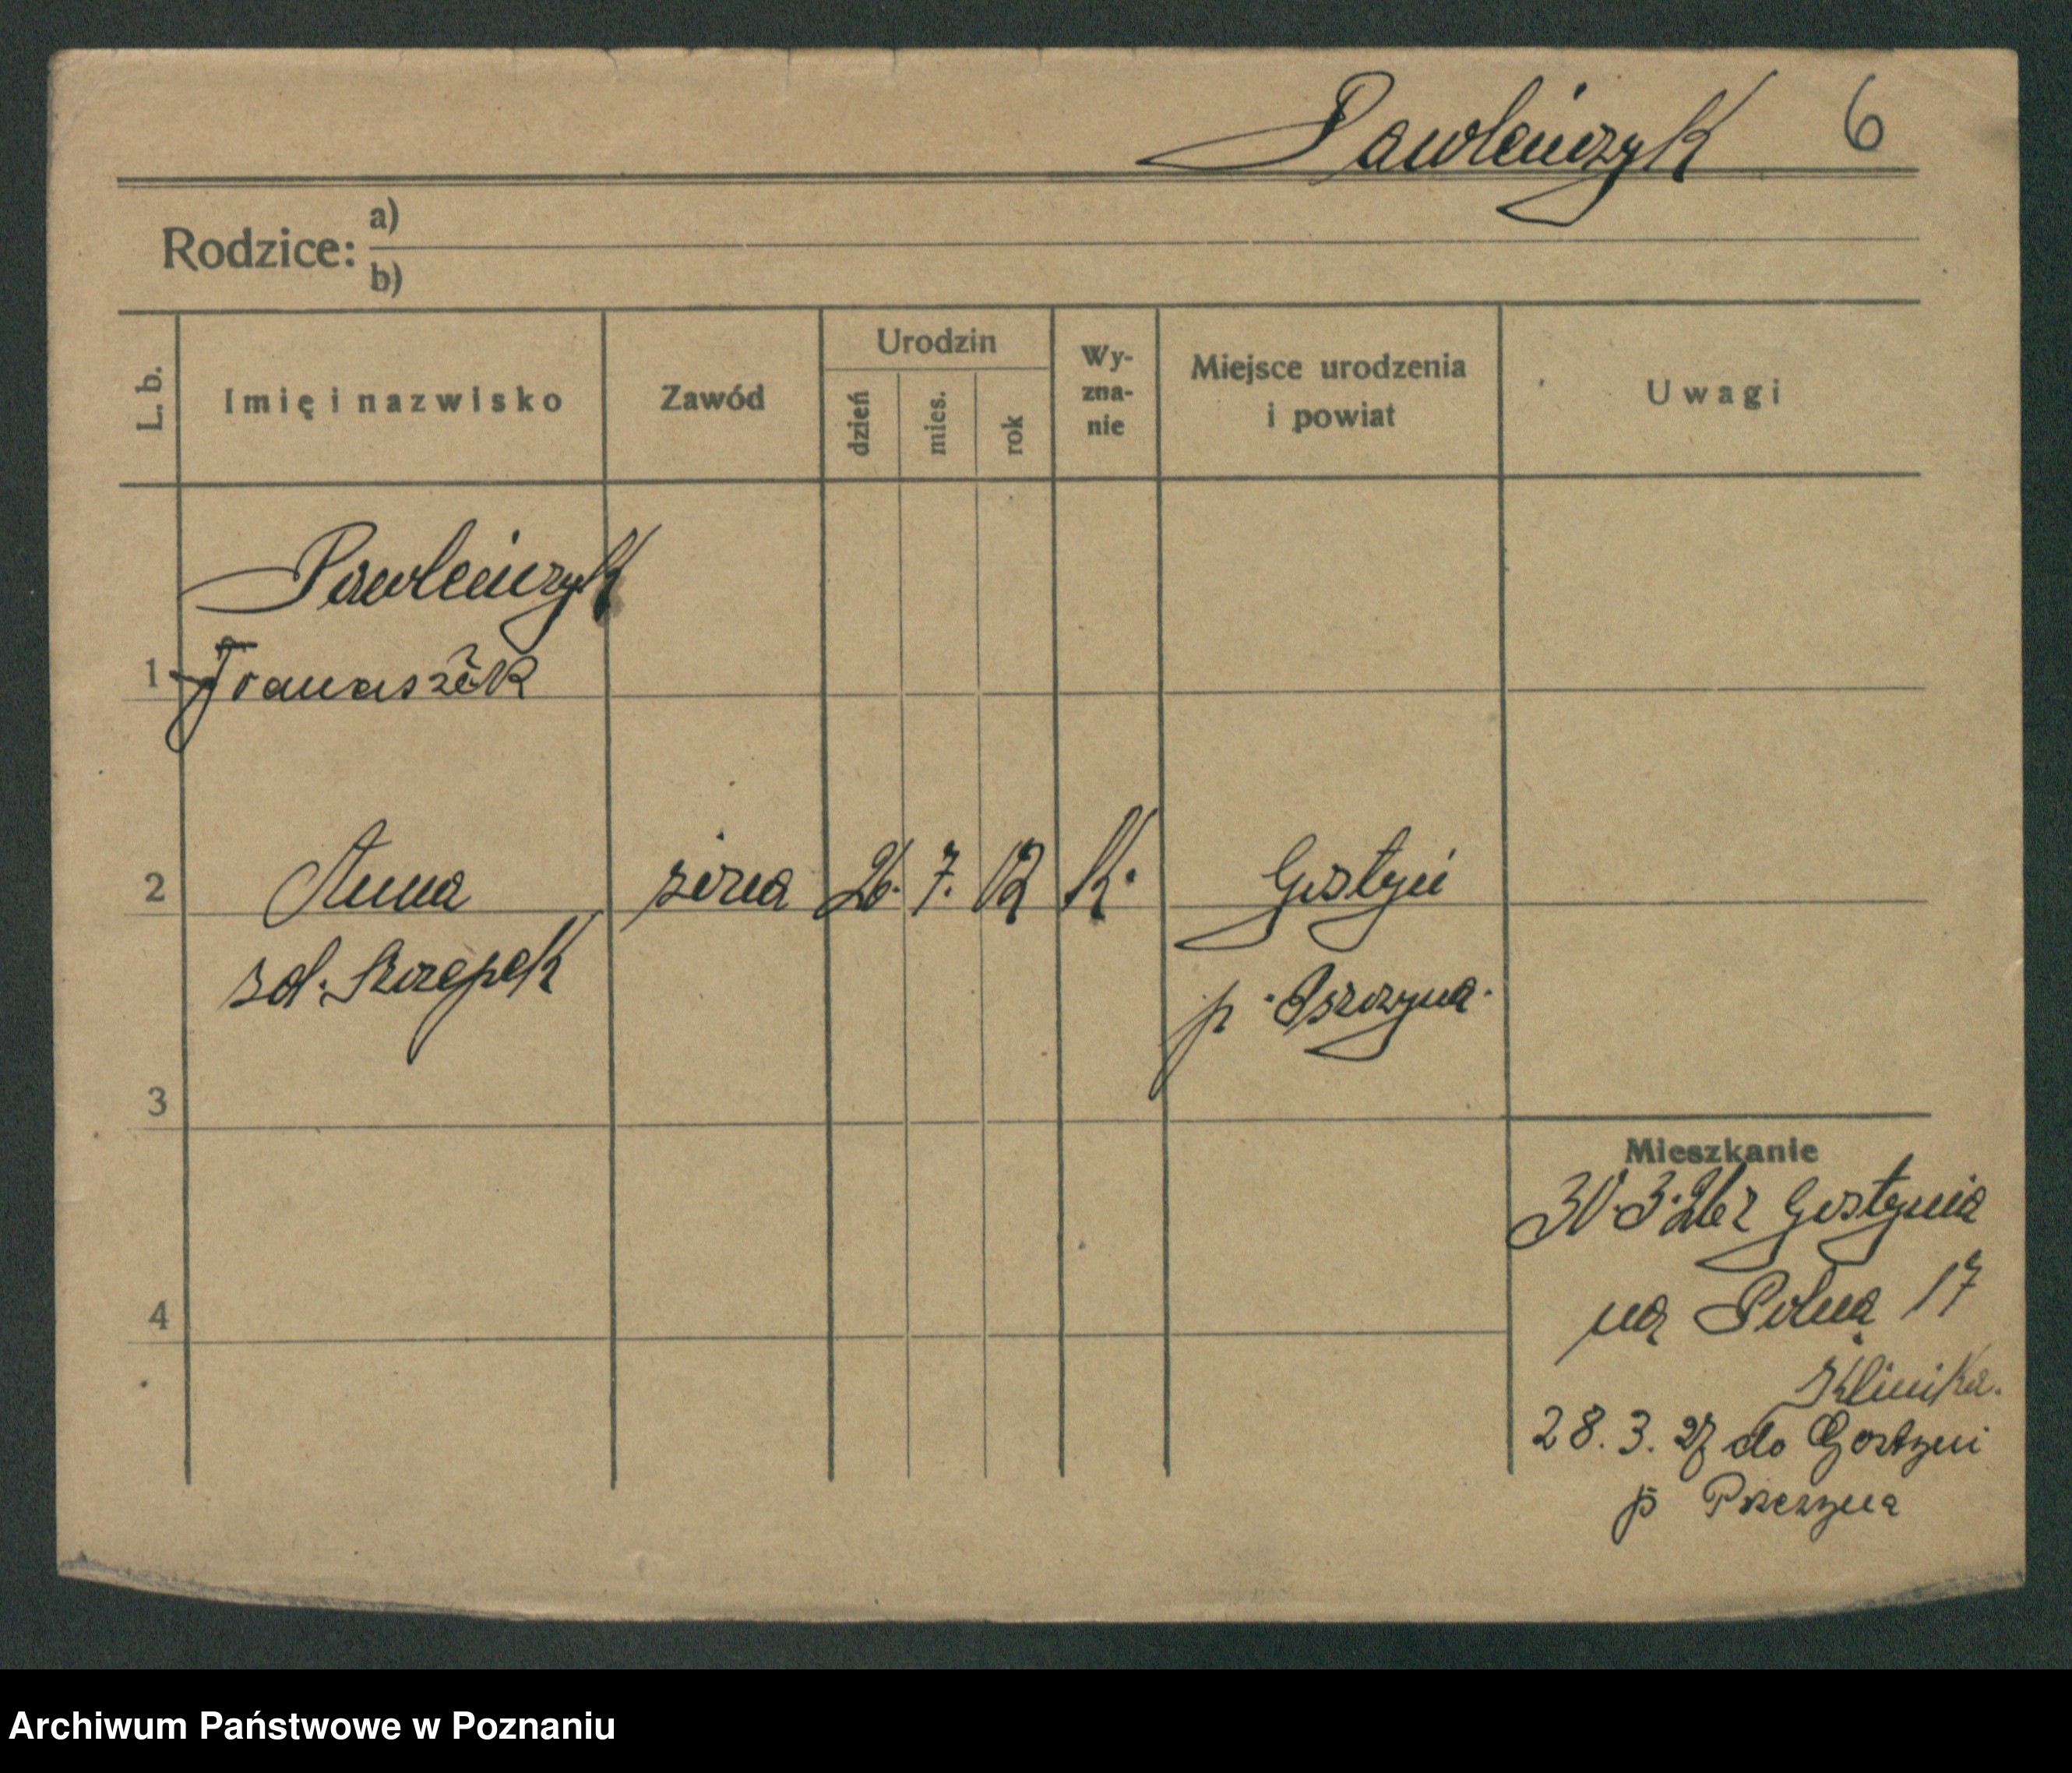 Pawleńczyk 6
Rodzice: a)
b)
L. b.
Imię i nazwisko
Zawód
Urodzin
dzień
mies.
rok
Wy-
zna-
nie
Miejsce urodzenia
i powiat
Uwagi
Pawleńczyk
1 Franciszek
2 Anna żona 26. 7. 02 K. Gostyń
zd. Szczepek p. Pszczyna.
3
Mieszkanie
30.3.26 z Gostynia
na Polną 17
4
Klinika.
28. 3. 27 do Gostyni
p Pszczyna
Archiwum Państwowe w Poznaniu